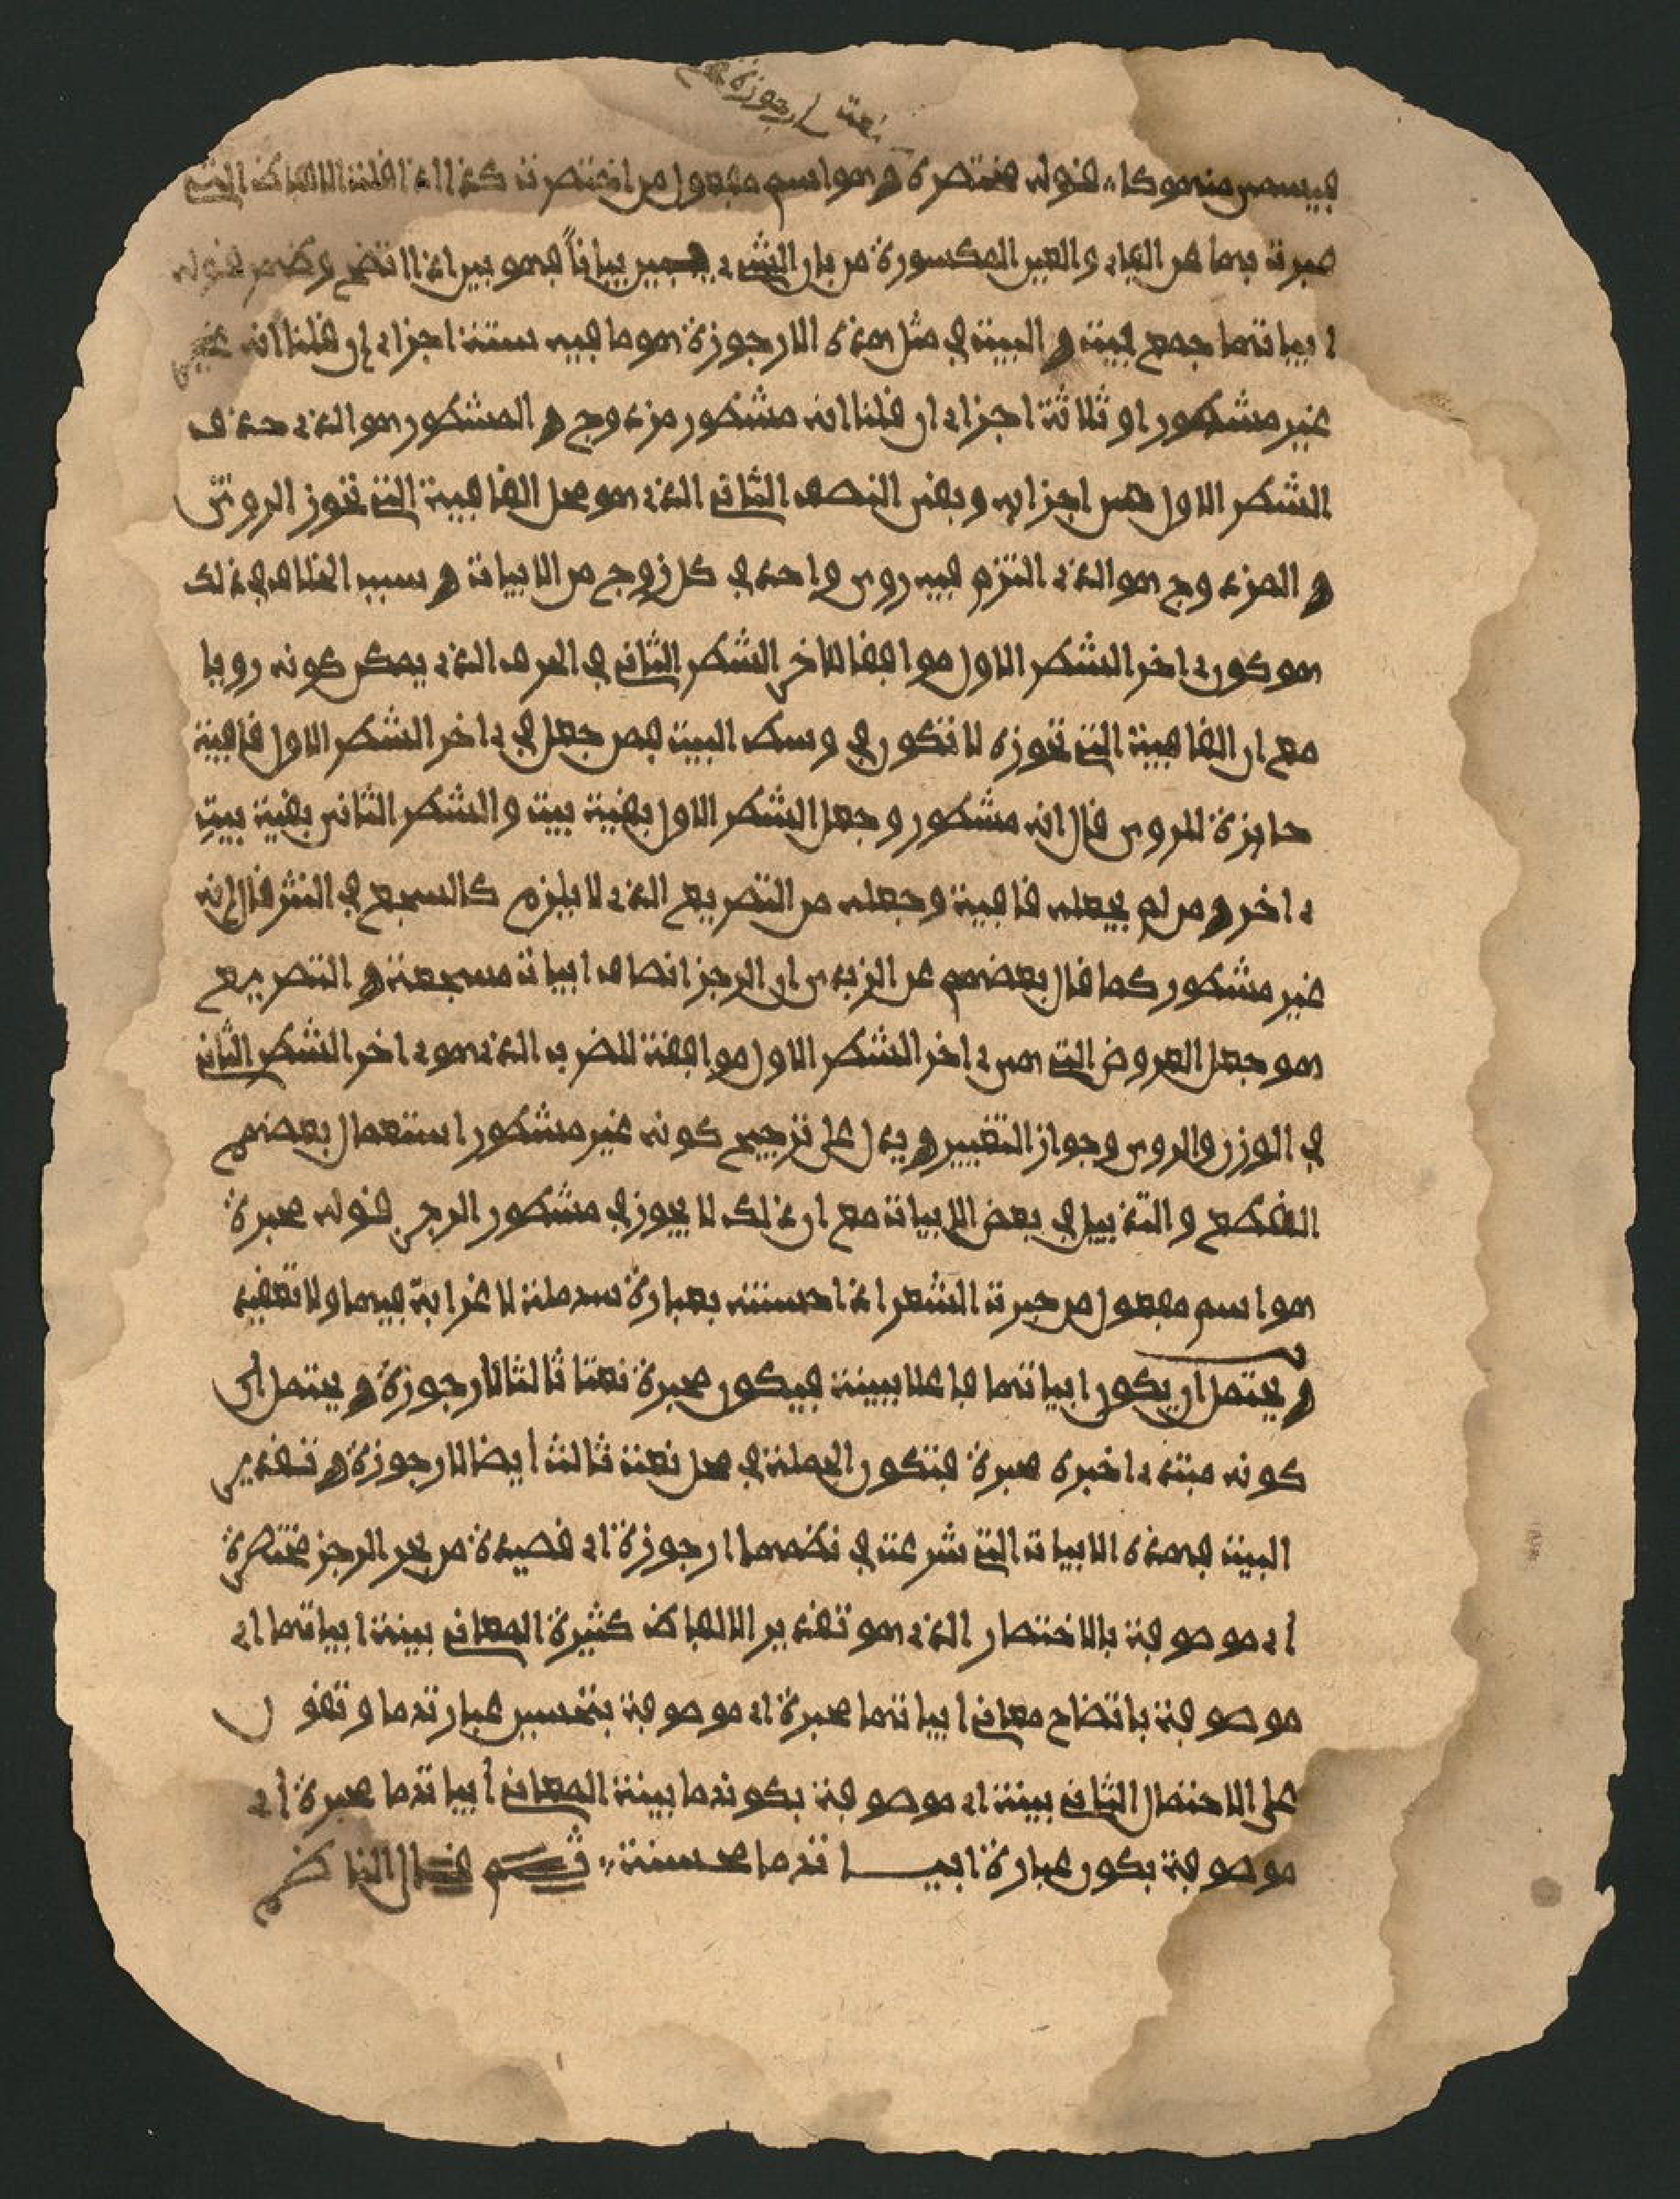 نعت ارجوزة
فيسمى منهوكا، قوله مختصرة هو اسم مفعول من اختصرت كذا اذا قللت الالفاظ التي
عبرت بها عن المعاني والعين المكسورة من بان الشيء يبين بيانا فهو بين اذا اتضح وظهر قوله
ابياتها جمع بيت و البيت في مثل هذه الارجوزة هو ما فيه ستة اجزاء ان قلنا انه غير
غير مشطور او ثلاثة اجزاء ان قلنا انه مشطور مزدوج و المشطور هو الذي حذف
الشطر الاول من اجزايه وبقى النصف الثاني الذي هو محل القافية التي تحوز الروى
و المزدوج هو الذي التزم فيه روى واحد في كل زوج من الابيات و سبب الخلاف في ذلك
هو كون ءاخر الشطر الاول موافقا لاخر الشطر الثاني في الحرف الذي يمكن كونه رويا
مع ان القافية التي تحوزه لا تكون في وسط البيت فمن جعل في ءاخر الشطر الاول قافية
حايزة للروى قال انه مشطور وجعل الشطر الاول بقية بيت والشطر الثانى بقية بيت
ءاخر و من لم يجعله قافية وجعله من التصريع الذي لا يلزم كالسجع في النثر قال انه
غير مشطور كما قال بعضهم عن الزبدى ان الرجز انصاف ابيات مسجعة و التصريع
هو جعل العروض التي هى ءاخر الشطر الاول موافقة للضرب الذي هو ءاخر الشطر الثاني
في الوزن والروى وجواز التغيير و يدل على ترجيح كونه غير مشطور استعمال بعضهم
القطع والتذييل في بعض الابيات مع ان ذلك لا يجوز في مشطور الرجز قوله محبرة
هو اسم مفعول من حبرت الشعر اذا حسنته بعبارة سهلة لا غرابة فيها ولا تعقيد
و يحتمل ان يكون ابياتها فاعلا ببينة فيكون محبرة نعتا ثالثا لارجوزة و يحتمل ان
كونه مبتدءا خبره محبرة فتكون الجملة في محل نعت ثالث ايضا لارجوزة و تقدير
البيت فهذه الابيات التي شرعت في نظمها ارجوزة اي قصيدة من بحر الرجز مختصرة
اي موصوفة بالاختصار الذي هو تقدير الالفاظ كثيرة المعاني بينة ابياتها اي
موصوفة باتضاح معاني ابياتها محبرة اي موصوفة بتحسين عبارتها وتقول
على الاحتمال الثاني بينة اي موصوفة بكونها بينة المعاني ابياتها محبرة اي
موصوفة بكون عبارة ابياتها محسنة، ثم قال الناظم